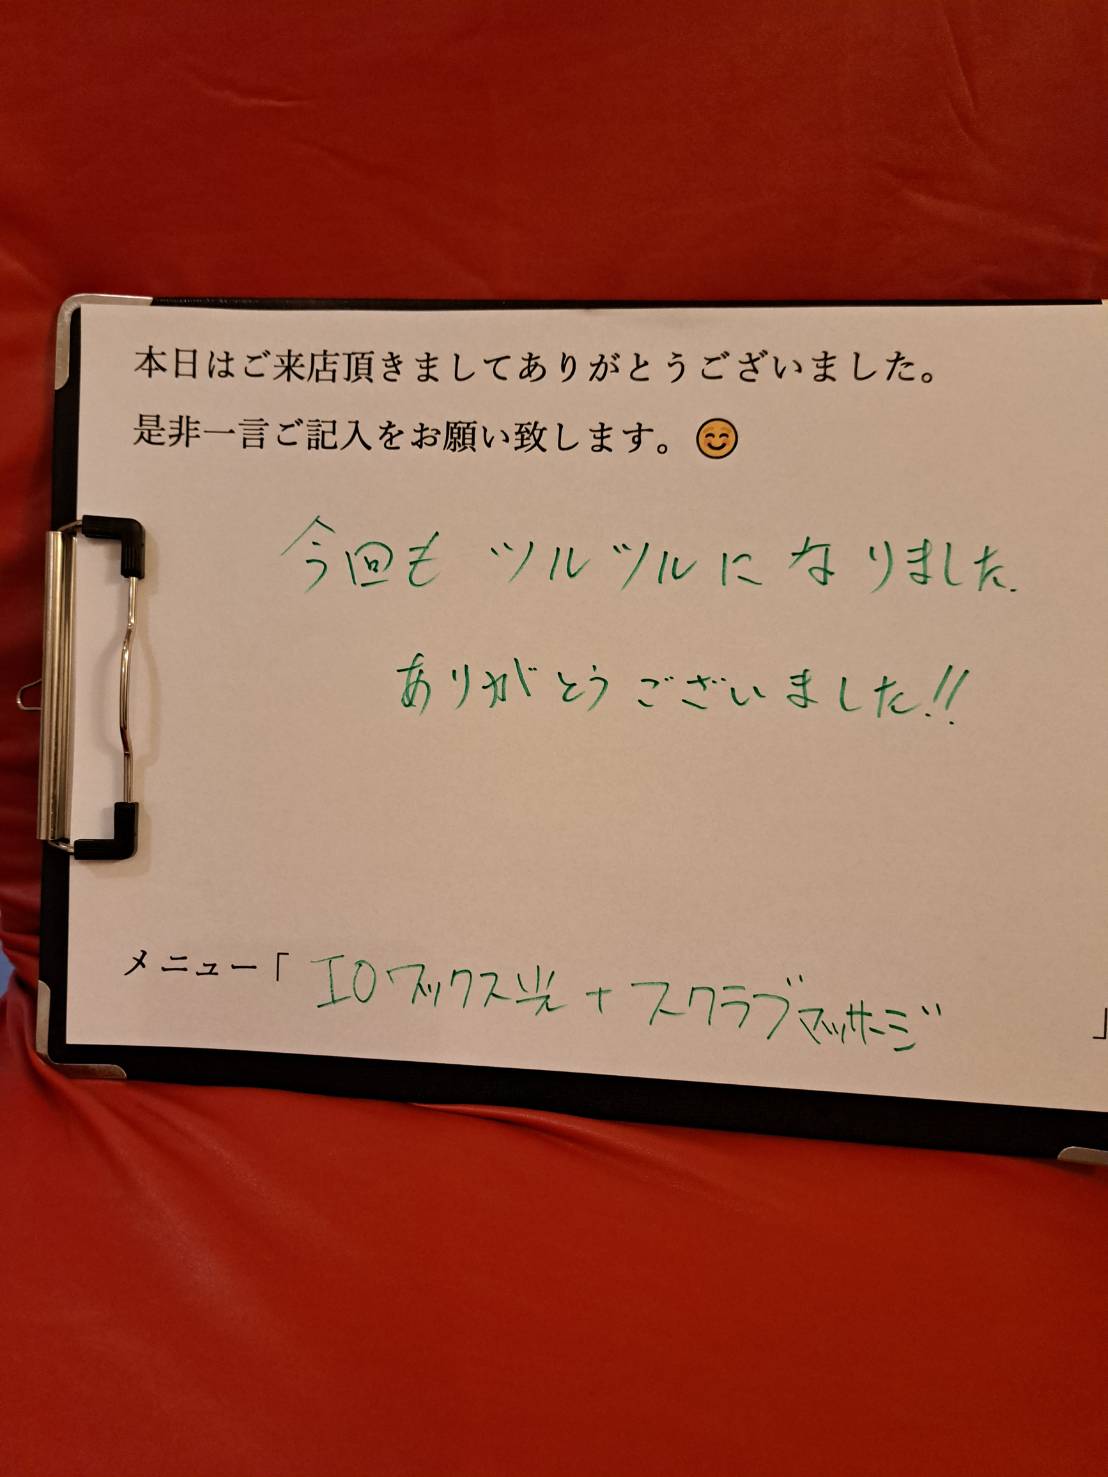 本日はご来店頂きましてありがとうございました。
是非一言ご記入をお願い致します。😊
今回も ツルツルになりました.
ありがとうございました!!
メニュー「 IOワックス光 + スクラブマッサージ 」